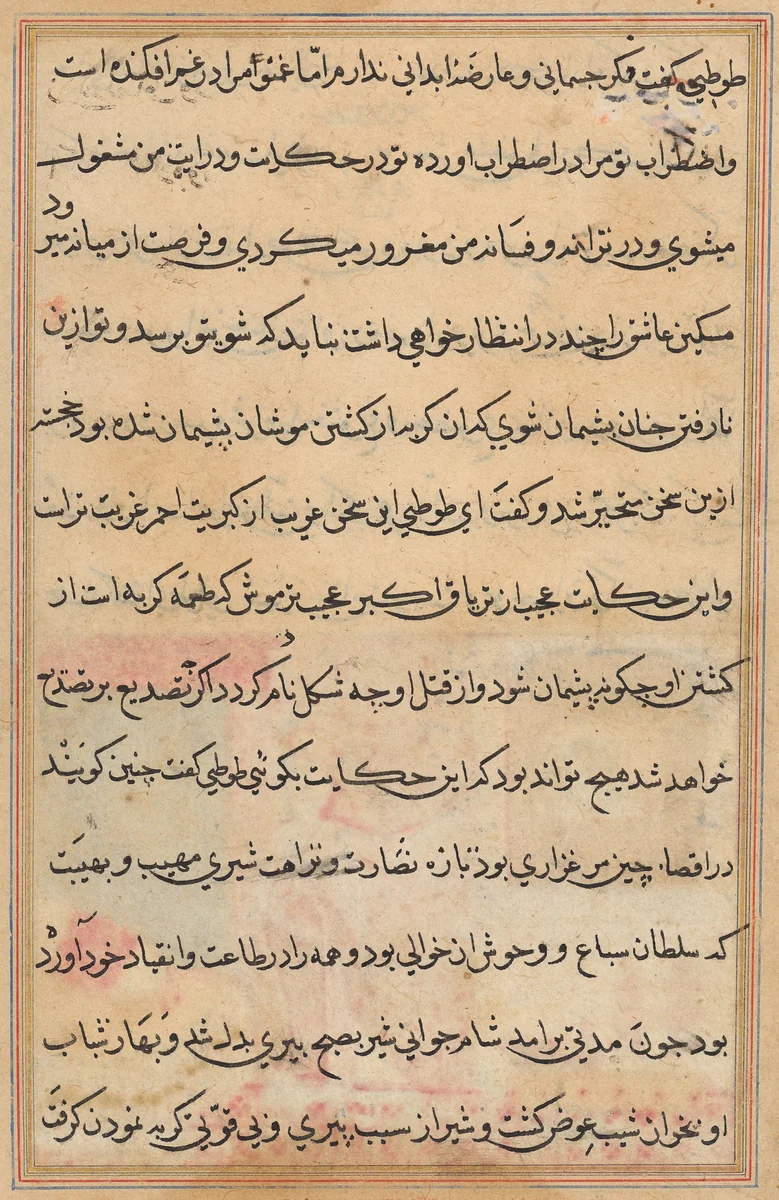 طوطي گفت فكر جسماني و عارضهٔ ابداني ندارم امّا غم تو مرا در غم افكنده است
و اضطراب تو مرا در اضطراب اورده تو در حكايت و درايت من مشغول
ميشوي و در ترانه و فسانه من مغرور ميكردي و فرصت از ميانه ميرود
مسكين عاشق را چند در انتظار خواهي داشت نبايد كه شوي تو برسد و تو ازين
نارفتن جنان پشيمان شوي كه ان كربه از كشتن موشان پشيمان شده بود خجسته
ازين سخن متحيّر شد و كفت اي طوطي اين سخن غريب از كبريت احمر غريب تر است
و اين حكايت عجيب از ترياق اكبر عجيب تر موش كه طعمه كربه است از
كشتن او چكونه پشيمان شود و از قتل او چه شكل نادم كردد اكر تصديع بر تصديع
خواهد شد هيچ تواند بود كه اين حكايت بكوئي طوطي كفت چنين كويند
در اقصاء چين مرغزاري بود تازه نضارت و نزاهت شيري مهيب و بهيبت
كه سلطان سباع و وحوش ان حوالي بود و همه را در طاعت و انقياد خود آورده
بود جون مدتي برامد شام جواني شير بصبح پيري بدل شد و بهار شباب
او بخزان شيب عوض كشت و شير از سبب پيري و بي قوّتي كربه نمودن كرفت